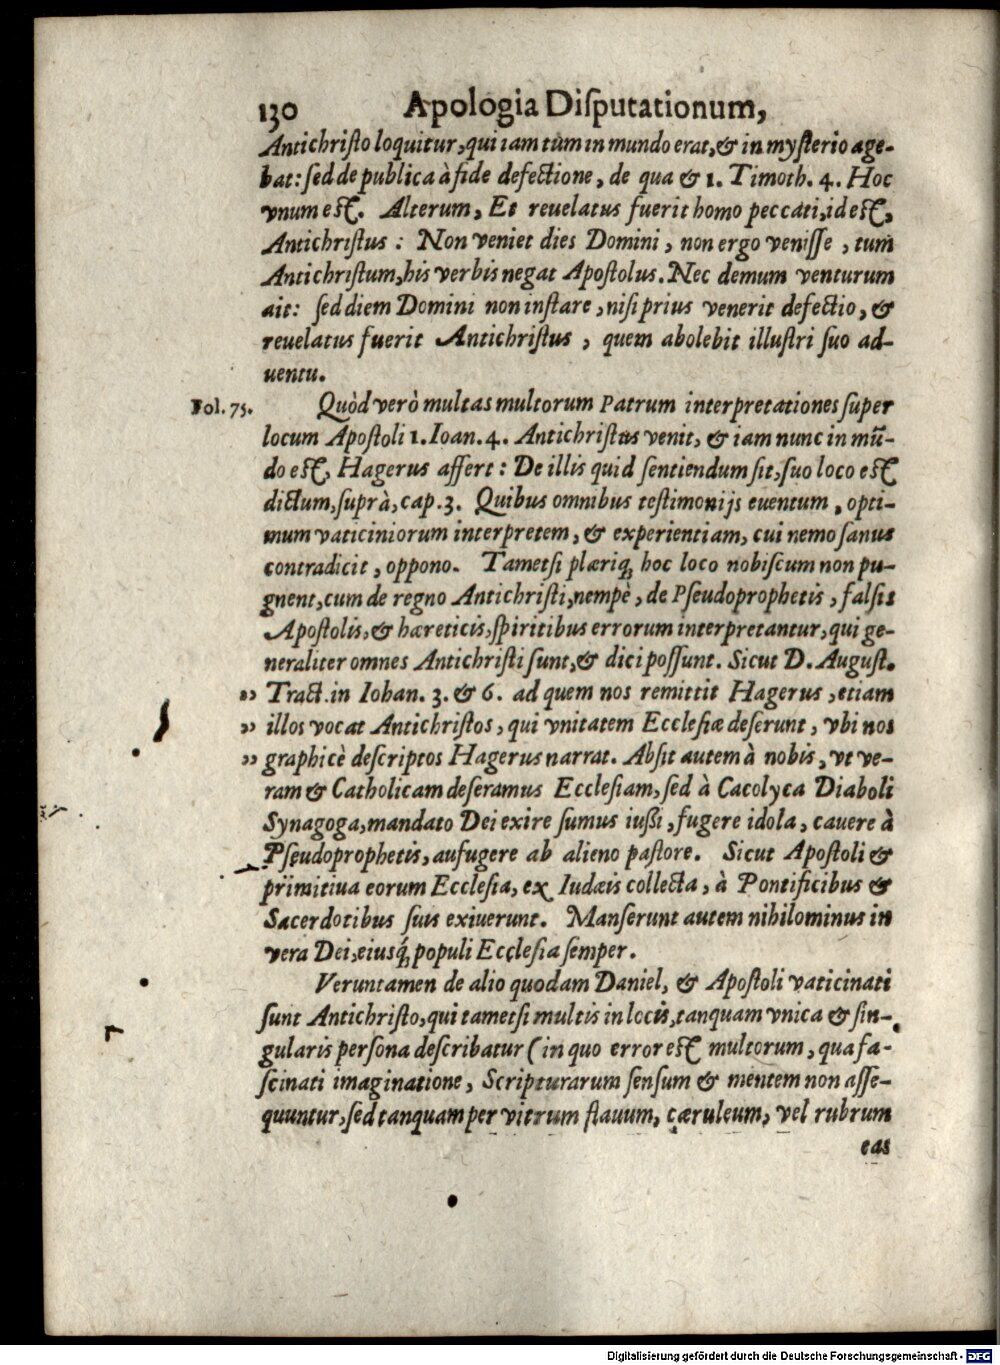 130 Apologia Diſputationum,
Antichriſto loquitur, qui iam tum in mundo erat, & in myſterio age-
bat: ſed de publica à fide defectione, de qua & 1. Timoth. 4. Hoc
vnum eſt. Alterum, Et reuelatus fuerit homo peccati, id eſt,
Antichriſtus: Non veniet dies Domini, non ergo veniſſe, tum
Antichriſtum, his verbis negat Apoſtolus. Nec demum venturum
ait: ſed diem Domini non inſtare, niſi prius venerit defectio, &
reuelatus fuerit Antichriſtus, quem abolebit illuſtri ſuo ad-
uentu.
Fol. 75. Quòd verò multas multorum Patrum interpretationes ſuper
locum Apoſtoli 1. Ioan. 4. Antichriſtus venit, & iam nunc in mũ-
do eſt, Hagerus affert: De illis quid ſentiendum ſit, ſuo loco eſt
dictum, ſuprà, cap. 3. Quibus omnibus teſtimonijs euentum, opti-
mum vaticiniorum interpretem, & experientiam, cui nemo ſanus
contradicit, oppono. Tametſi plæriq; hoc loco nobiſcum non pu-
gnent, cum de regno Antichriſti, nempè, de Pſeudoprophetis, falſis
Apoſtolis, & hæreticis, ſpiritibus errorum interpretantur, qui ge-
neraliter omnes Antichriſti ſunt, & dici poſſunt. Sicut D. Auguſt.
„ Tract. in Iohan. 3. & 6. ad quem nos remittit Hagerus, etiam
„ illos vocat Antichriſtos, qui vnitatem Eccleſiæ deſerunt, vbi nos
„ graphicè deſcriptos Hagerus narrat. Abſit autem à nobis, vt ve-
ram & Catholicam deſeramus Eccleſiam, ſed à Cacolyca Diaboli
Synagoga, mandato Dei exire ſumus iuſsi, fugere idola, cauere à
Pſeudoprophetis, aufugere ab alieno paſtore. Sicut Apoſtoli &
primitiua eorum Eccleſia, ex Iudæis collecta, à Pontificibus &
Sacerdotibus ſuis exiuerunt. Manſerunt autem nihilominus in
vera Dei, eiusq́; populi Eccleſia ſemper.
Veruntamen de alio quodam Daniel, & Apoſtoli vaticinati
ſunt Antichriſto, qui tametſi multis in locis, tanquam vnica & ſin-
gularis perſona deſcribatur (in quo error eſt multorum, qua fa-
ſcinati imaginatione, Scripturarum ſenſum & mentem non aſſe-
quuntur, ſed tanquam per vitrum flauum, cæruleum, vel rubrum
eas
Digitalisierung gefördert durch die Deutsche Forschungsgemeinschaft - DFG